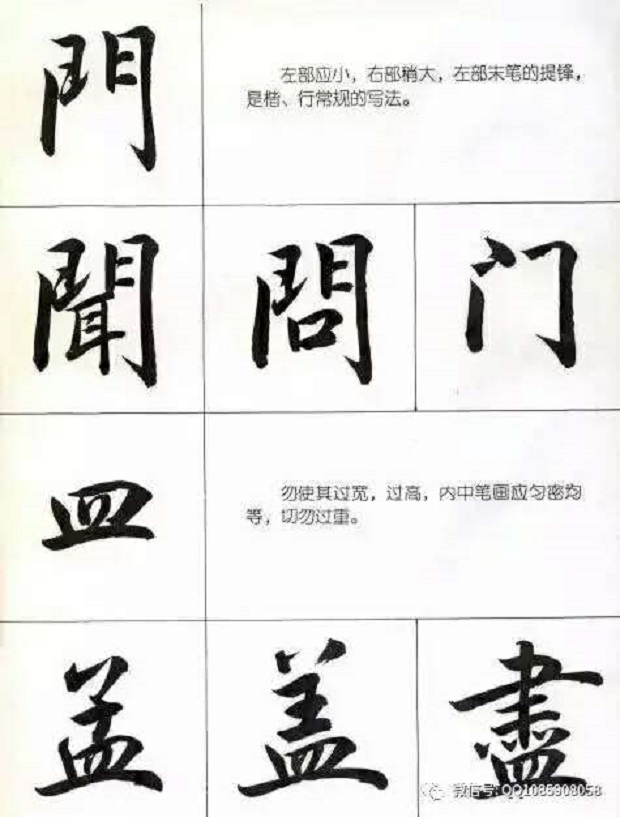 門
左部应小，右部稍大，左部末笔的提锋，
是楷、行常规的写法。
聞 問 门
皿
勿使其过宽，过高，内中笔画应匀密均
等，切勿过重。
孟 盖 盡
微信号: